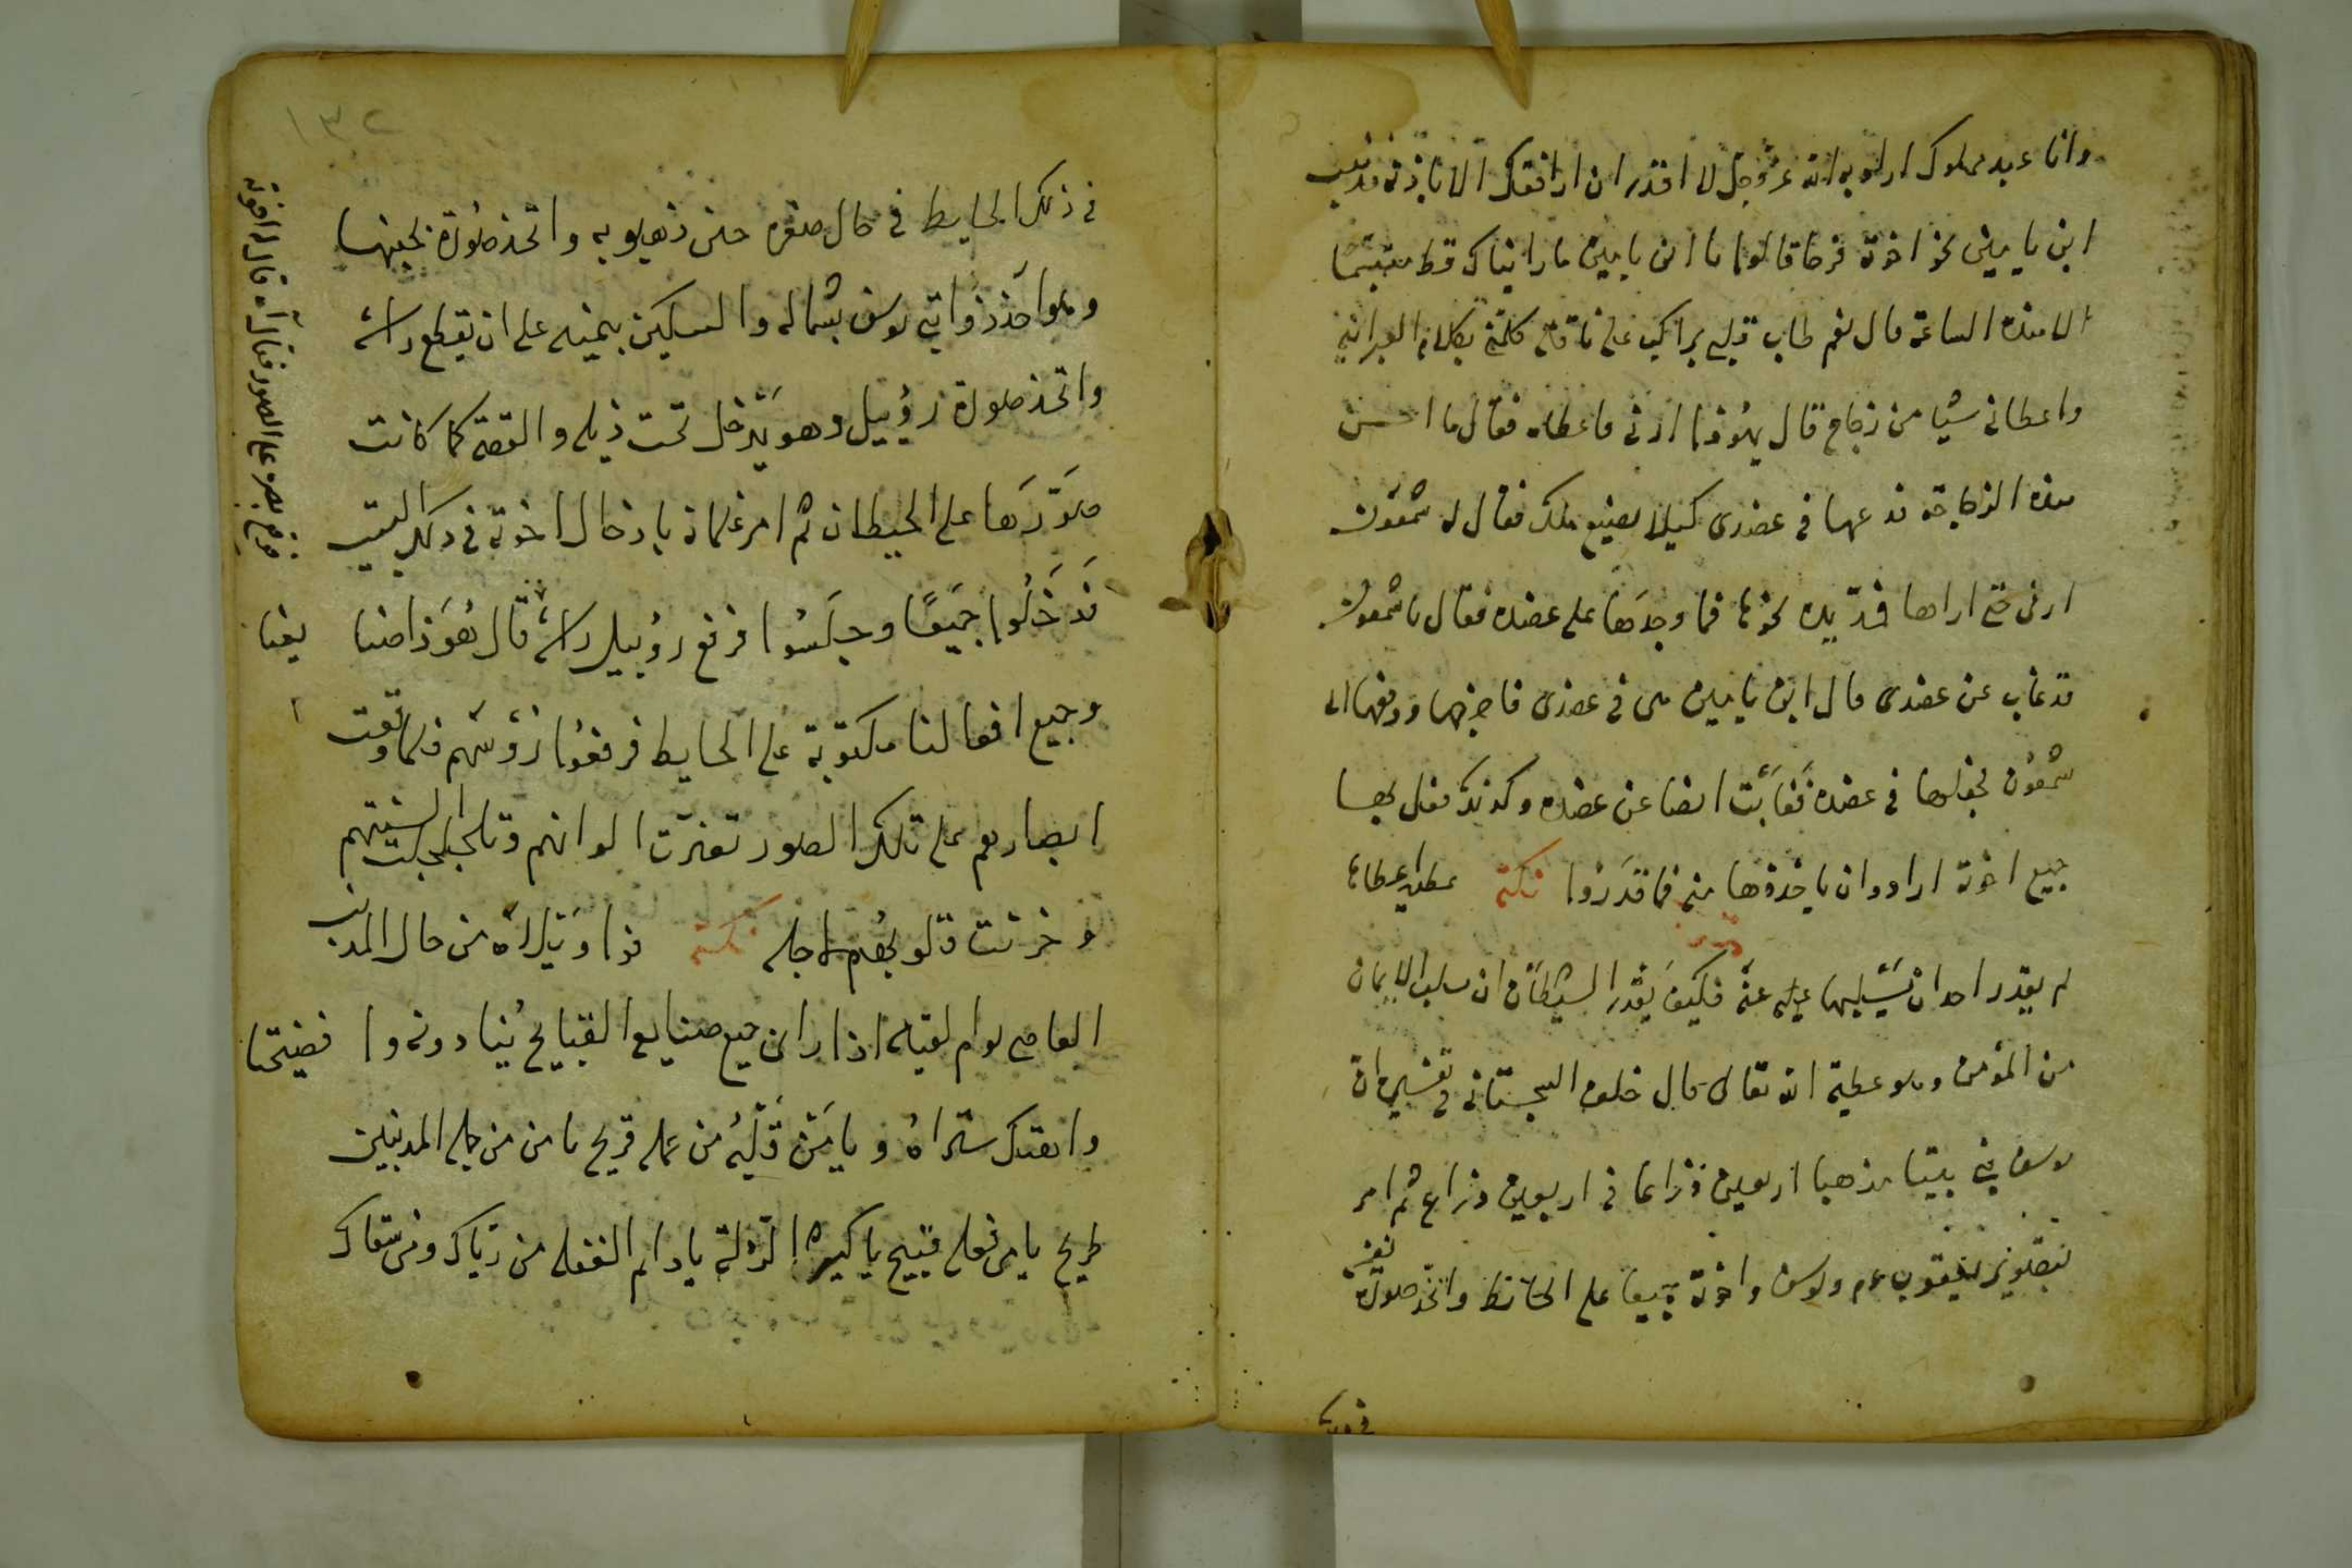 وانا عبد مملوك اراد به الله عز وجل لا اقدر ان ارافقك الا باذنه فذهب
ابن يامين نحو اخوته فرحا فقالوا يا ابن يامين ما رايناك قط متبسما
الا هذه الساعة قال نعم طاب قلبي براكب على ناقة كلمني بكلام العبرانية
واعطاني شيا من زجاج قال يهوذا ارني فاعطاه فقال ما احسن
هذه الزجاجة فدعها في عضدى كيلا يضيع ملك فقال له شمعون
ارنى حتى اراها فمد يده نحوها فما وجدها على عضده فقال يا شمعون
قد غاب عن عضدى قال ابن يامين هى في عضدى فاخرجها ودفعها الى
شمعون فجعلها في عضده فغابت ايضا عن عضده وكذلك فعل بها
جميع اخوته ارادوا ان ياخذوها منه فما قدروا نكتة عطية اعطاها
لم يقدر احد ان يسلبها عنه فكيف يقدر الشيطان ان يسلب الايمان
من المؤمن وهو عطية الله تعالى قال خلف السجستاني في تفسيره ان
يوسف بنى بيتا مذهبا اربعين ذراعا في اربعين ذراع ثم امر
بتصوير يعقوب عم ويوسف واخوته جميعا على الحائط واتخذ صورة
في ذلك
١٣٢
في ذلك الحايط في حال صغره حين ذهبوا به واتخذ صورة
وهو اخذ ذوائب يوسف بشماله والسكين بيمينه على ان يقطع راسه
واتخذ صورة روبيل وهو يدخل تحت ذيله والقصة كما كانت
صورها على الحيطان ثم امر غلمانه بادخال اخوته في ذلك البيت
فدخلوا جميعا وجلسوا فرفع روبيل راسه قال
وجميع افعالنا مكتوبة على الحايط فرفعوا رؤسهم فلما وقعت
ابصارهم على تلك الصور تغيرت الوانهم وتلجلجت السنتهم
وخرست قلوبهم نكتة من حال المذنب
العاصي يوم لقيه اذا راى جميع صنايع القبايح ينادونه وا فضيحتا
وانهتك ستراه ويا من قلبه من عمله قريح يا من من جملة المذنبين
طريح يا من فعله قبيح يا كبير الزلة يا دايم الغفلة من رباك ومن سقاك